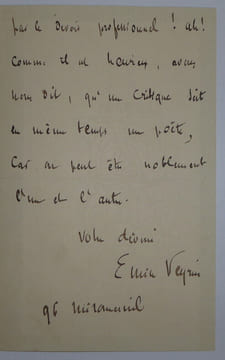 par le Devoir professionnel ! ah !
Comme il est heureux, avons
nous dit, qu'un critique soit
en même temps un poète,
Car on peut être noblement
l'un et l'autre.
Votre dévoué
Emile Veyrin
96 Miromesnil